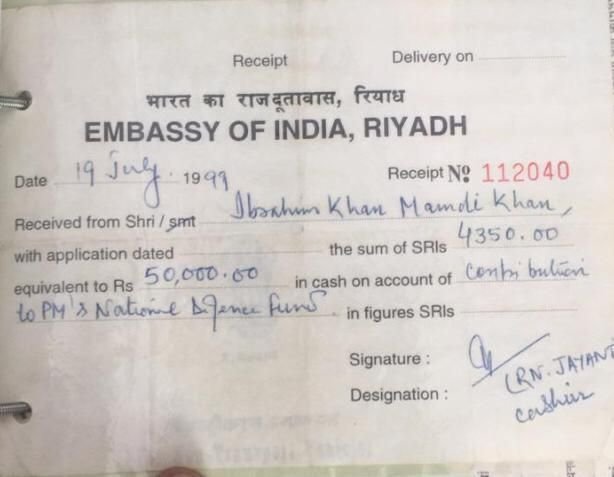 Receipt Delivery on
भारत का राजदूतावास, रियाध
EMBASSY OF INDIA, RIYADH
Date 19 July. 1999 Receipt No 112040
Received from Shri / smt Ibrahim Khan Mamdi Khan,
with application dated the sum of SRls 4350.00
equivalent to Rs 50,000.00 in cash on account of Contribution
to PM's National Defence Fund. in figures SRls
Signature :
(RN. JAYANT
Designation : cashier